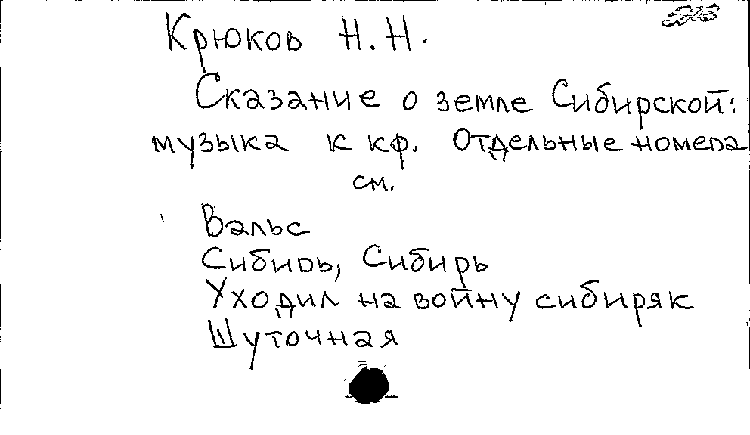 Крюков Н.Н.
Сказание о земле Сибирской:
музыка к кф. Отдельные номера
см.
Вальс
Сибирь, Сибирь
Уходил на войну сибиряк
Шуточная